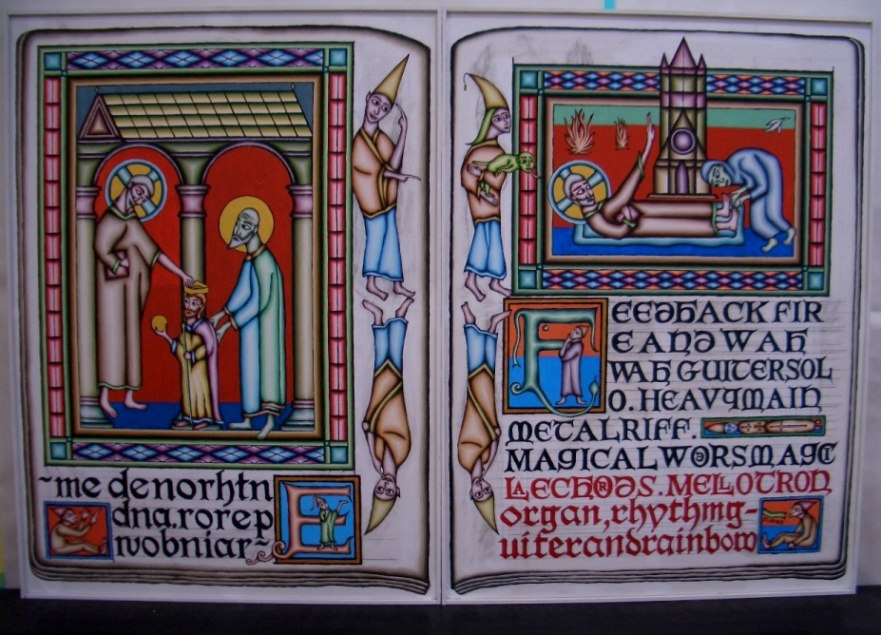 ~me denorhtnE
dna.rorep
wobniar~
FEEDBACK FIR
E AND WAH
WAH GUITERSOL
O. HEAVYMAIN
METALRIFF.
MAGICAL WORDSMAGIC
AL ECHORDS. MELLOTRON,
organ, rhythmg-
uiterandrainbow